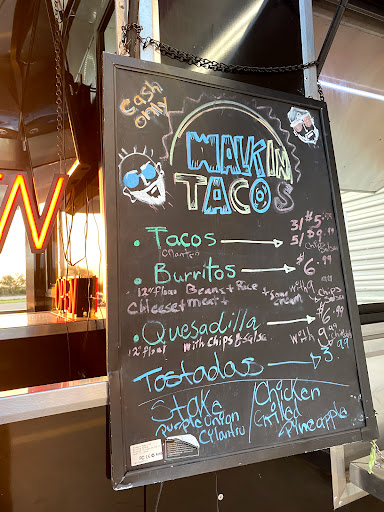 cash
only
WALKIN
TACOS
• Tacos → 3/$5
cilantro 5/$9.99
• Burritos → $6.99
12" flour Beans + Rice + sour cream with chips
Chicese + meat +
• Quesadilla → $6.99
12" flour with chips & salsa with
Tostadas → 3.99
Stake / Chicken
purple onion Grilled
Cilantro / Pineapple